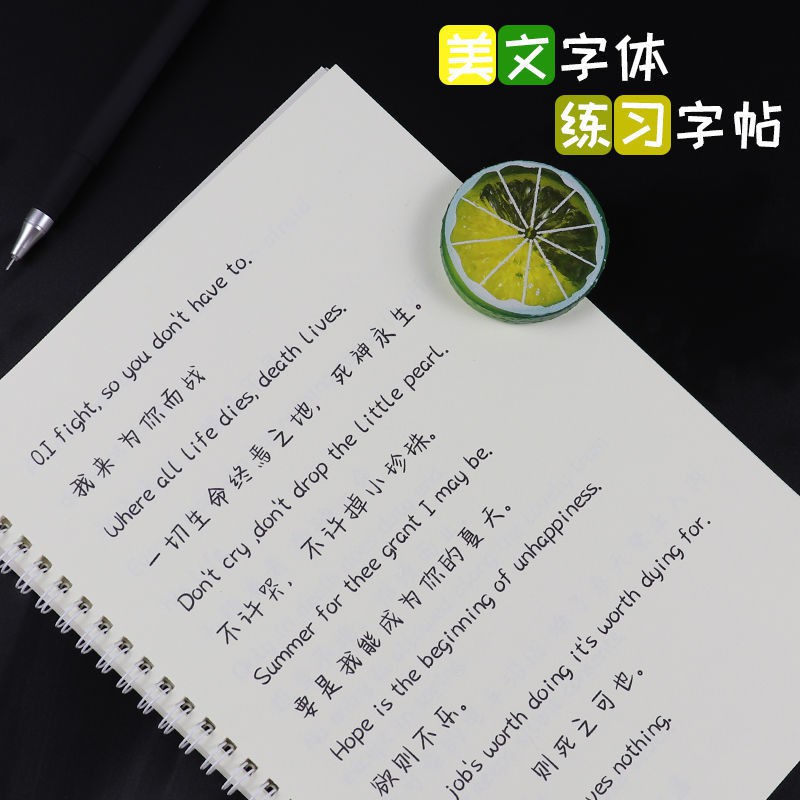 美文字体
练习字帖
0.I fight, so you don't have to.
我来 为你而战
Where all life dies, death lives.
一切生命终焉之地，死神永生。
Don't cry ,don't drop the little pearl.
不许哭，不许掉小珍珠。
Summer for thee grant I may be.
要是我能成为你的夏天。
Hope is the beginning of unhappiness.
欲则不乐。
job's worth doing it's worth dying for.
则死之可也。
nothing.